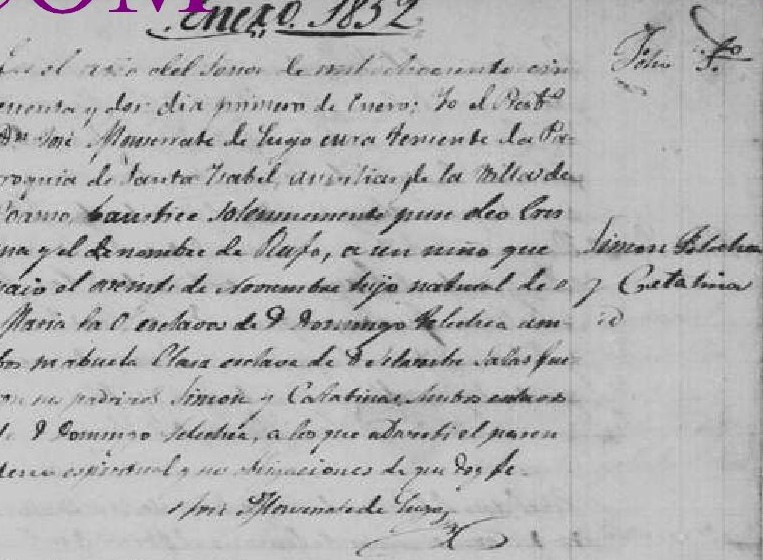 COM
Enero. 1852
el año del Senor de mil ochociento cin
cuenta y dos dia primero de Enero; Yo el Presb.º
D.n José Monserrate de Lugo cura teniente de la Pa
rroquia de Santa Ysabel, auxiliar de la Villa de
bautice solennemente puse oleo Cris
ma y el de nombre de Rufo, a un niño que
nacio el veinte de Noviembre hijo natural de
Maria la O esclavos de D Domingo am
bos abuela Clara esclava de D Salas fue
on sus padrinos Simon y Catatina, Ambos esclavos
de D Domingo, a los que adverti el paren
tesco espiritual y sus obligaciones de que doy fe.
José Monserrate de Lugo
Folio 1.º
Simon
y Catatina
id